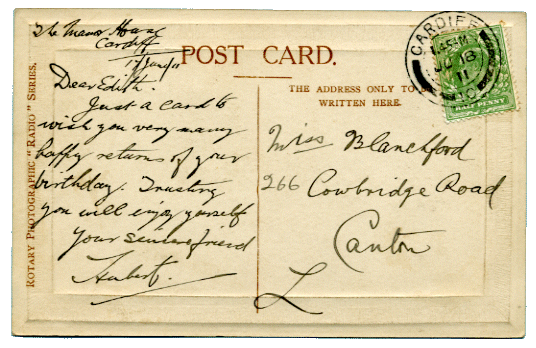 The Manor House
Cardiff
POST CARD.
Dear Edith.
Just a card to
wish you very many
happy returns of your
birthday. Trusting
you will enjoy yourself
Your sincere friend
Hubert.
THE ADDRESS ONLY TO BE
WRITTEN HERE.
Miss Blanchford
266 Cowbridge Road
Canton
L
ROTARY PHOTOGRAPHIC "RADIO" SERIES.
CARDIFF
18
11
HALFPENNY